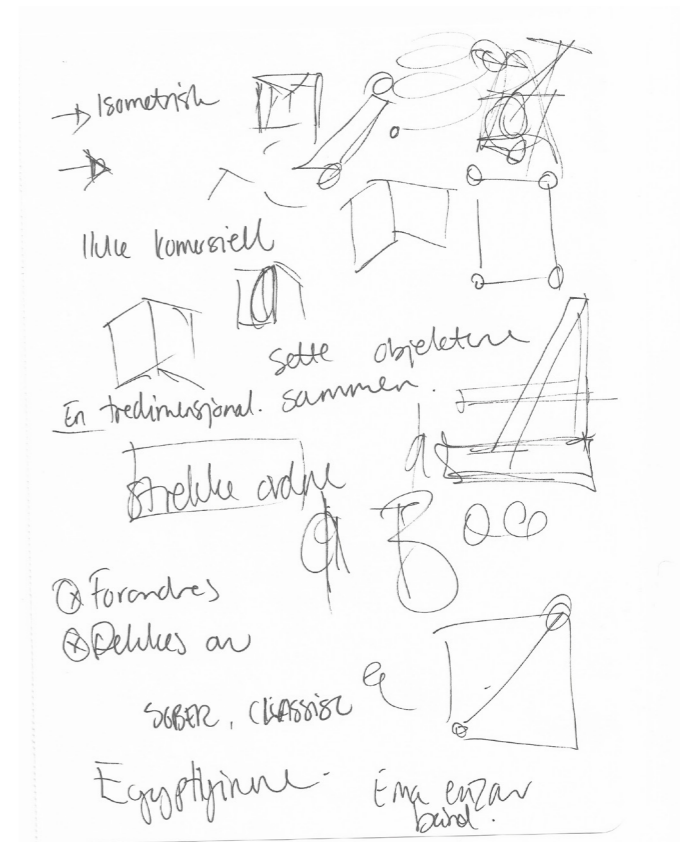 → Isometrisk
Ikke komersiell
Sette objektene
sammen.
En tredimensjonal.
Strekke ordne
a B
Forandres
Dekkes av
SOBER, CLASSISK
Egypterinne